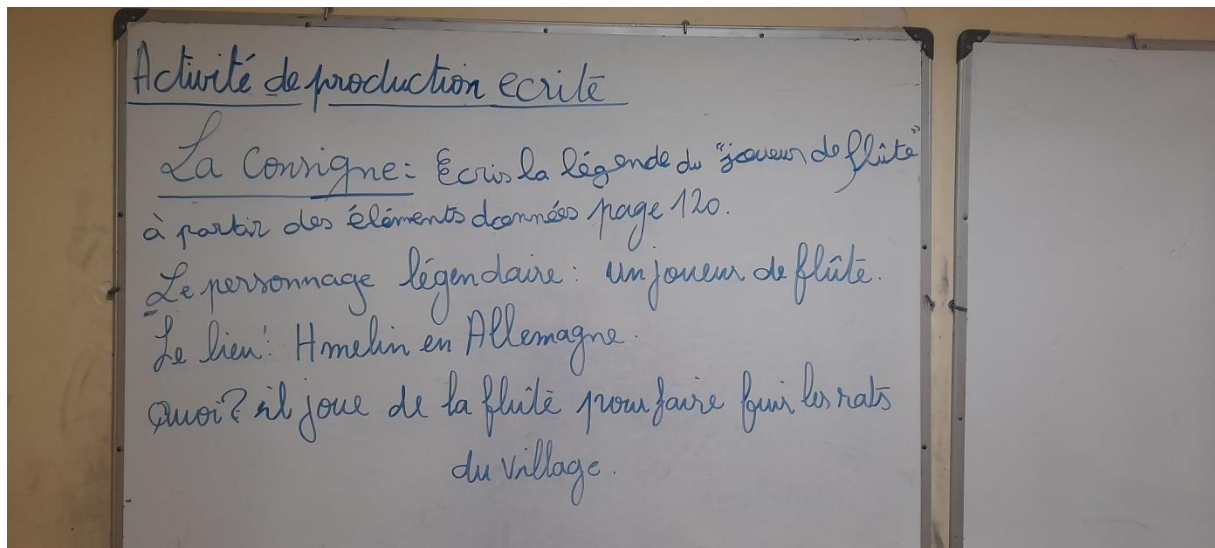 Activité de production ecrite
La Consigne: Écris la légende du "joueur de flûte"
à partir des éléments données page 120.
Le personnage légendaire: un joueur de flûte.
Le lieu: Hmelin en Allemagne.
Quoi? il joue de la flûte pour faire fuir les rats
du village.